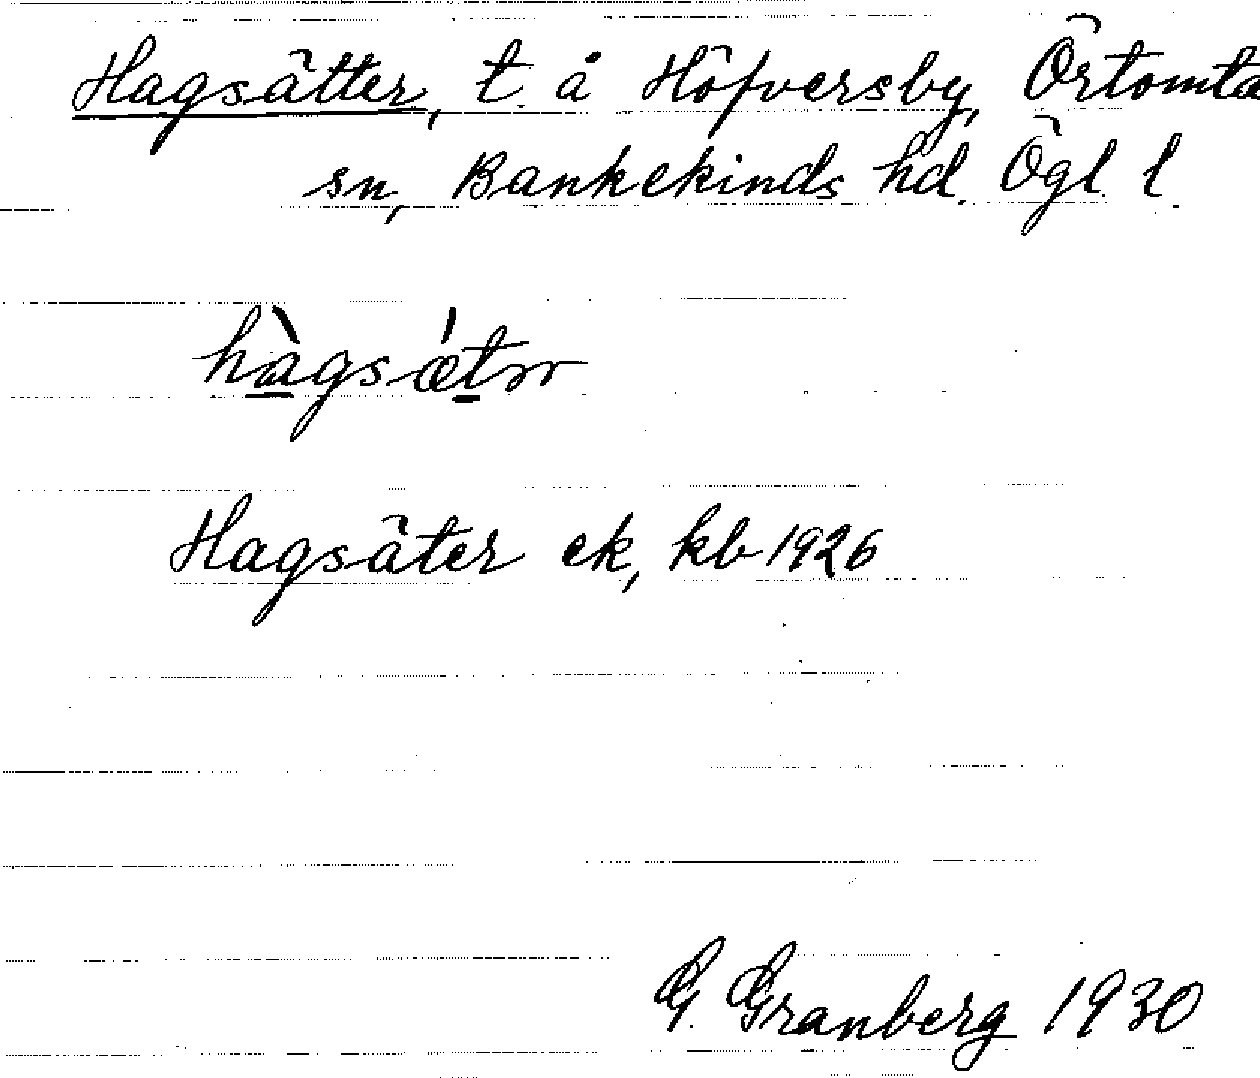 Hagsätter, t. å Höfversby, Örtomta
sn, Bankekinds hd. Ögl. l.
hàgsǽtər
Hagsäter ek, kb 1926
G. Granberg 1930